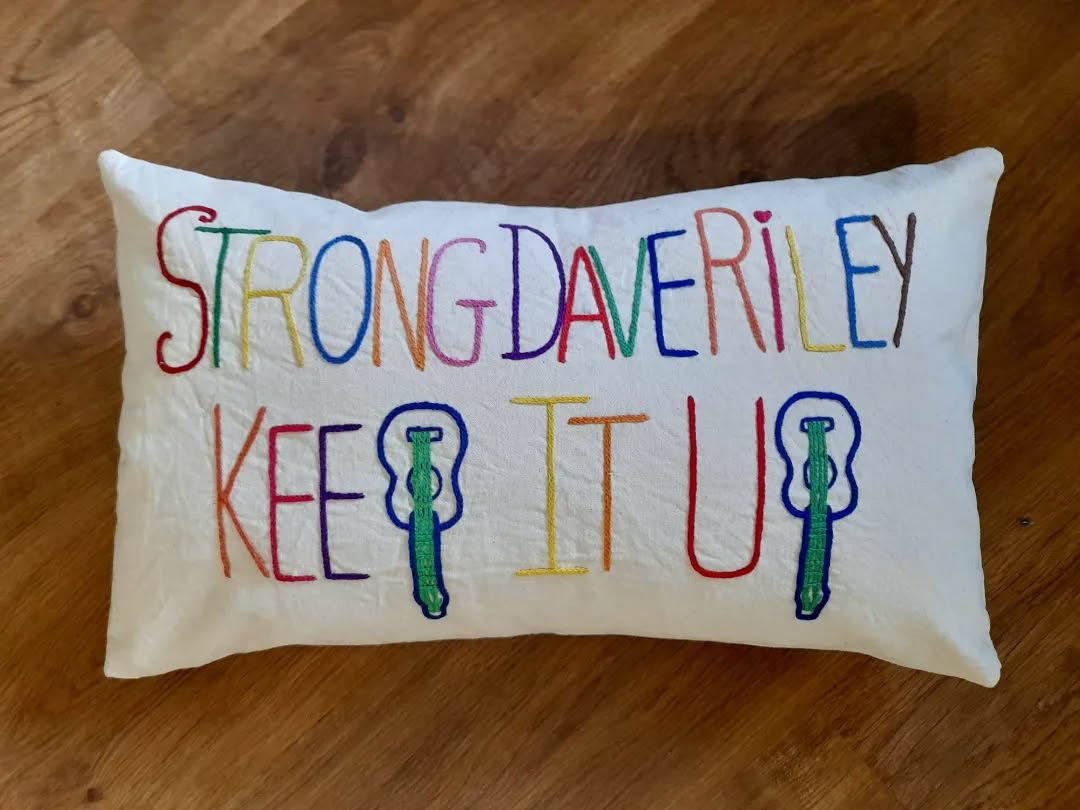 STRONG DAVE RiLEY
KEEP IT UP